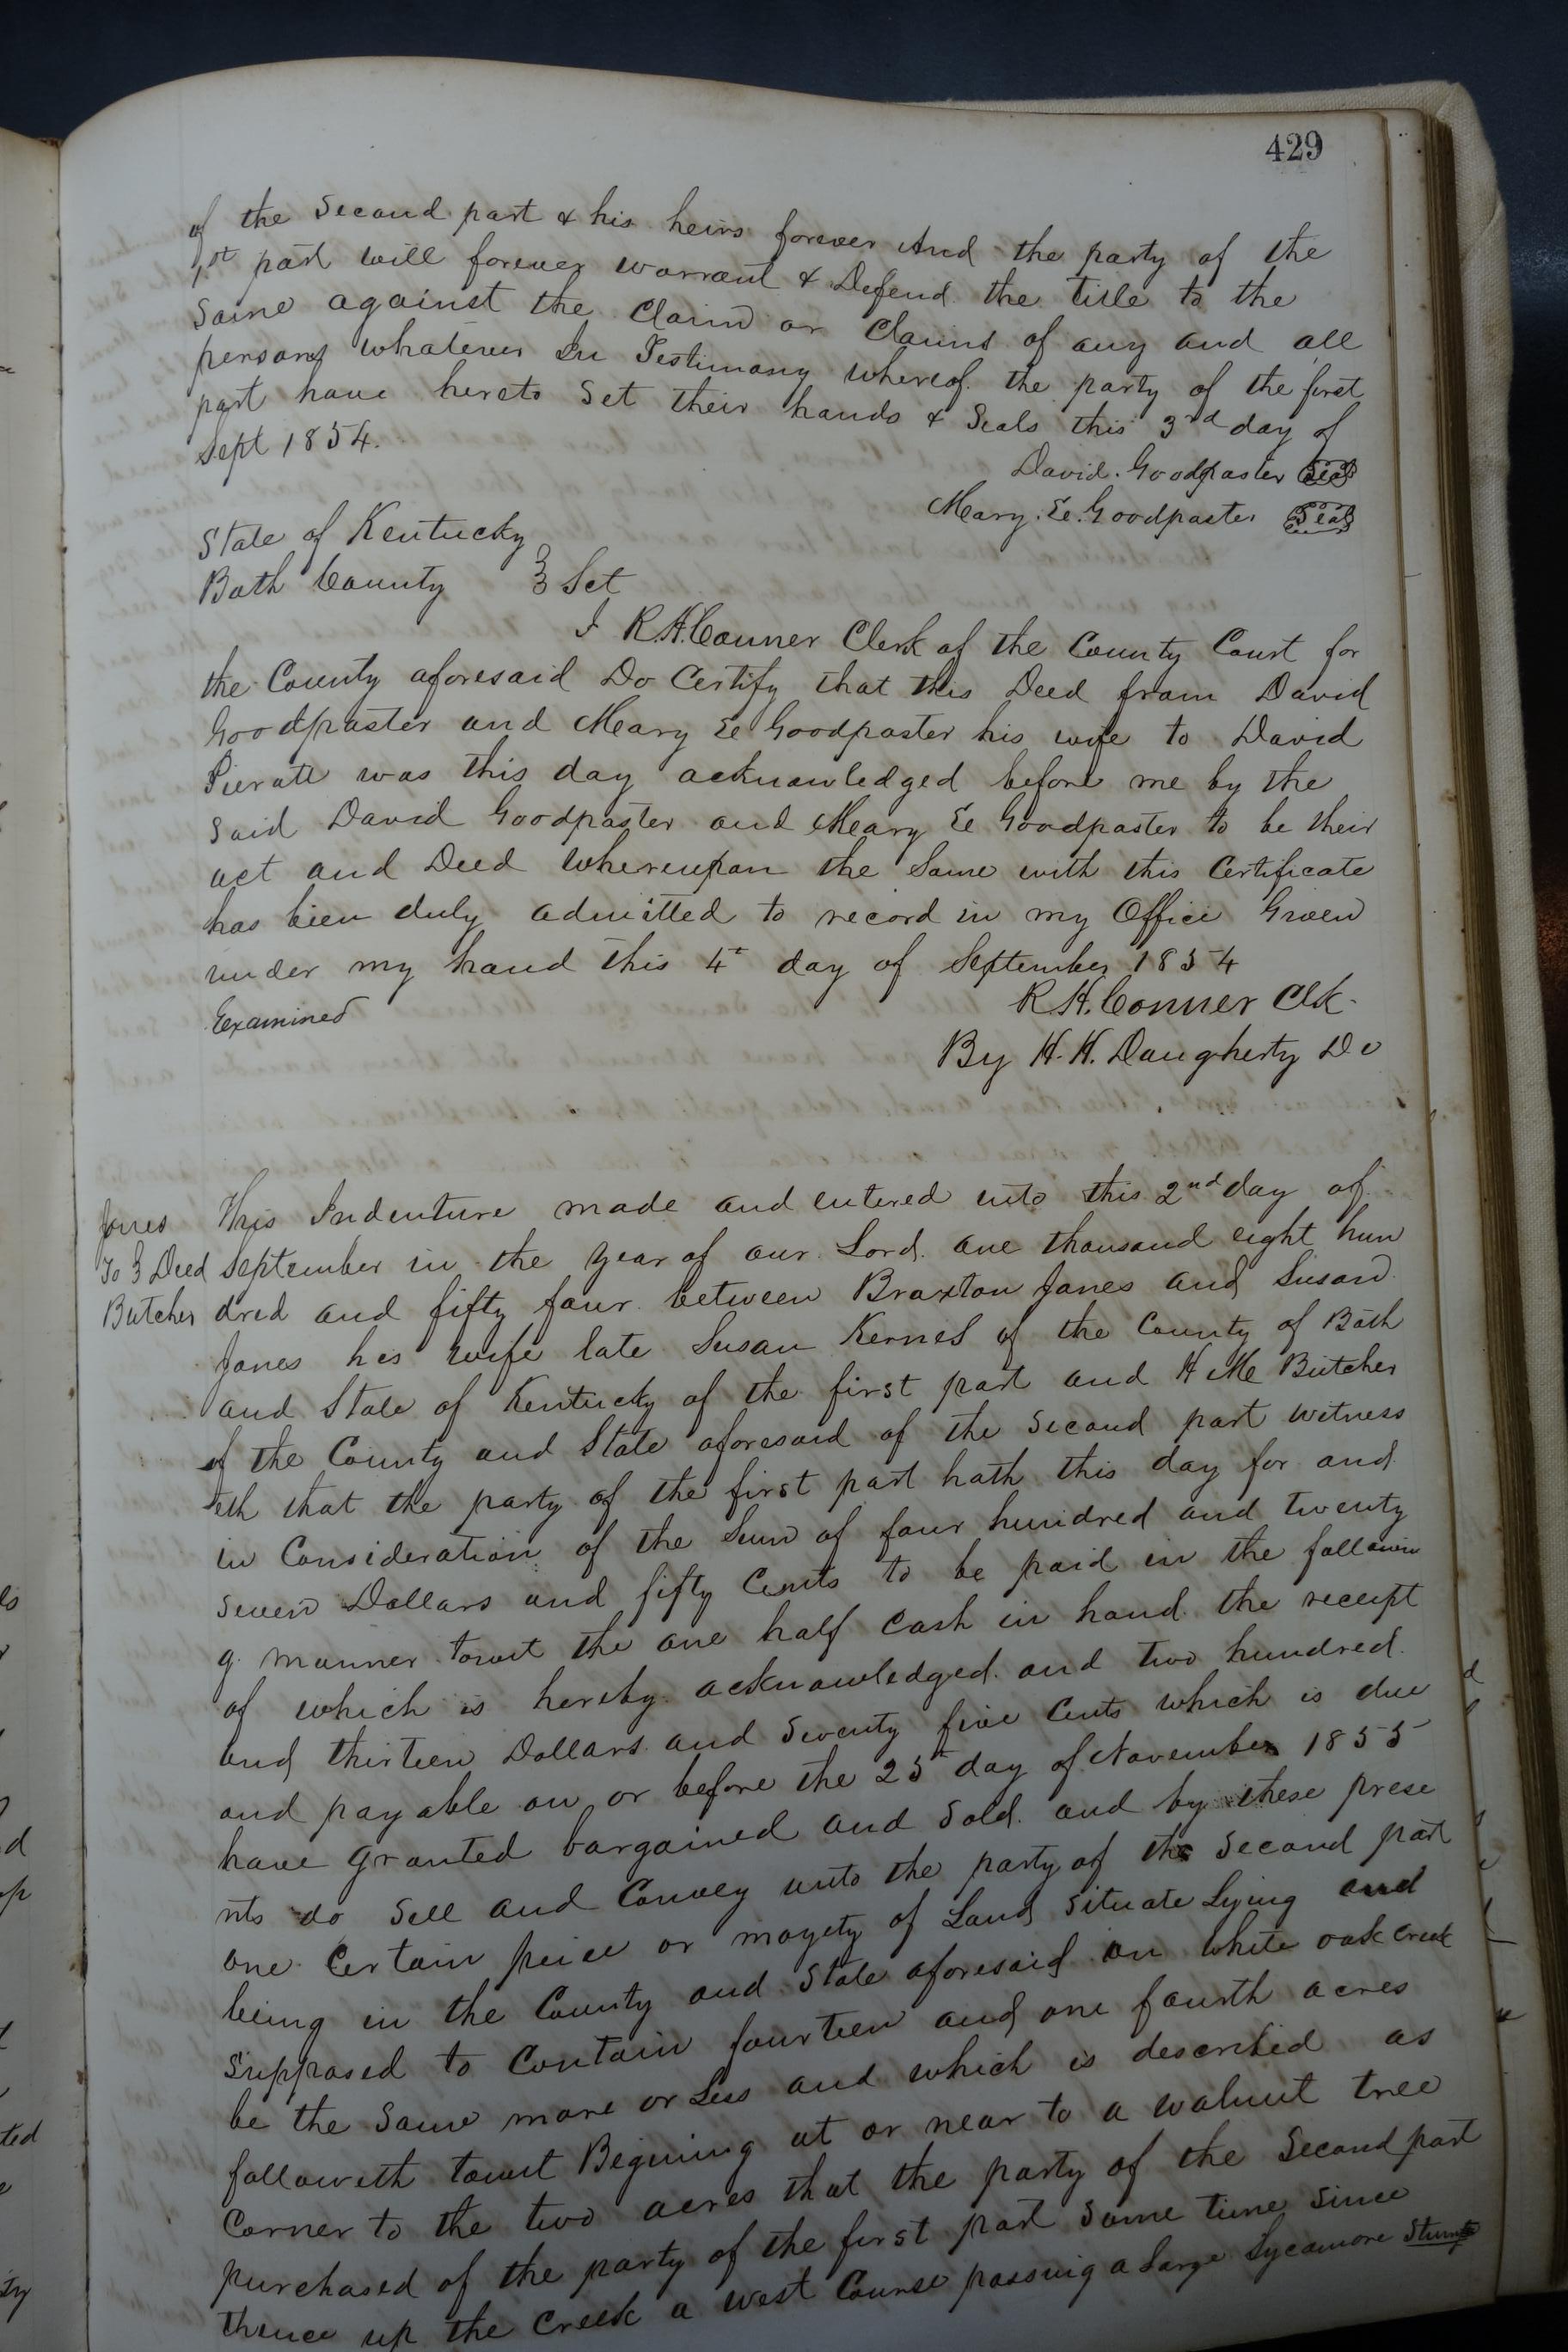 429
of the Second part & his heirs forever And the party of the
1st part will forever warrant & Defend the title to the
Same against the Claim or Claims of any and all
persons whatever In Testimony whereof the party of the first
part have hereto Set their hands & Seals this 3rd day of
Sept 1854.
David. Goodpaster Seal
Mary. E. Goodpaster Seal
State of Kentucky
Bath County } Sct
I R.H. Conner Clerk of the County Court for
the County aforesaid Do Certify that this Deed from David
Goodpaster and Mary E Goodpaster his wife to David
Pieratt was this day acknowledged before me by the
Said David Goodpaster and Mary E Goodpaster to be their
act and Deed Whereupon the Same with this Certificate
has been duly admitted to record in my Office Given
under my hand this 4t day of September 1854
Examined
R.H. Conner Clk.
By H. H. Daugherty D C
Jones
To } Deed
Butcher
This Indenture made and entered into this 2nd day of
September in the year of our Lord one thousand eight hun
dred and fifty four between Braxton Jones and Susan
Jones his wife late Susan Kernes of the County of Bath
and State of Kentucky of the first part and H M Butcher
of the County and State aforesaid of the Second part witness
eth that the party of the first part hath this day for and
in Consideration of the Sum of four hundred and twenty
Seven Dollars and fifty Cents to be paid in the followin
g manner towit the one half Cash in hand the receipt
of which is hereby acknowledged and two hundred
and thirteen Dollars and Seventy five Cents which is due
and payable on or before the 25t day of November 1855
have granted bargained and Sold and by these prese
nts do Sell and Convey unto the party of the Second part
one Certain peice or moyety of Land Situate Lying and
being in the County and State aforesaid on White oak Creek
Supposed to Contain fourteen and one fourth acres
be the Same more or Less and which is described as
followeth towit Begining at or near to a walnut tree
Corner to the two acres that the party of the Second part
purchased of the party of the first part Some time Since
thence up the Creek a west Course passing a Large Sycamore Stump